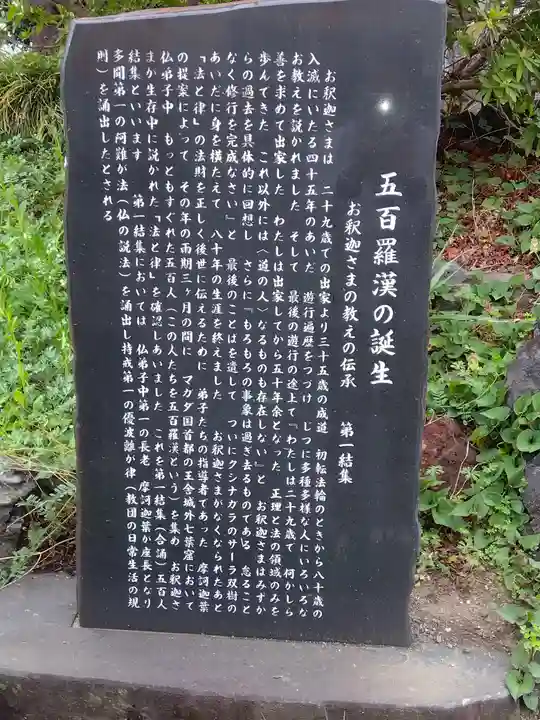 五百羅漢の誕生
お釈迦さまの教えの伝承　第一結集
お釈迦さまは　二十九歳での出家より三十五歳の成道　初転法輪のときから八十歳の
入滅にいたる四十五年のあいだ　遊行遍歴をつづけ　じつに多種多様な人にいろいろな
お教えを説かれました　そして　最後の遊行の途上で『わたしは二十九歳で　何かしら
善を求めて出家した　わたしは出家してから五十年余となった　正理と法の領域のみを
歩んできた　これ以外には〈道の人〉なるものも存在しない』と　お釈迦さまはみずか
らの過去を具体的に回想し　さらに『もろもろの事象は過ぎ去るものである　怠ること
なく修行を完成なさい』と　最後のことばを遺して　ついにクシナガラのサーラ双樹の
あいだに身を横たえて　八十年の生涯を終えました　お釈迦さまがなくなられたあと
『法と律』の法財を正しく後世に伝えるために　弟子たちの指導者であった　摩訶迦葉
の提案によって　その年の雨期三ヶ月の間に　マガダ国首都の王舎城外七葉窟において
仏弟子中　もっともすぐれた五百人（この人たちを五百羅漢という）を集め　お釈迦さ
まが生存中に説かれた『法と律』を確認しあいました　これを第一結集（合誦）五百人
結集といいます　第一結集においては　仏弟子中第一の長老　摩訶迦葉が座長となり
多聞第一の阿難が法（仏の説法）を誦出し持戒第一の優波離が律（教団の日常生活の規
則）を誦出したとされる